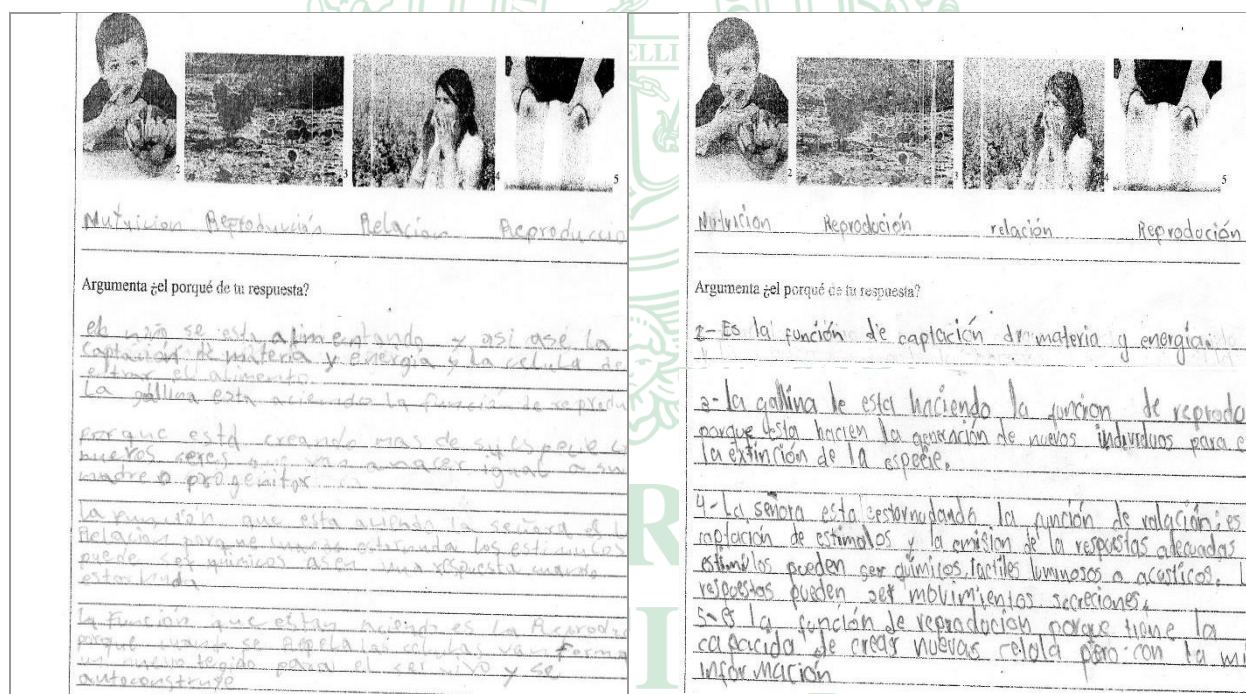 2
3
4
5
Nutricion Reproducción Relación Reproduccio
Argumenta ¿el porqué de tu respuesta?
el niño se esta alimentando y asi ase la
captación de materia y energia y la celula de
entrar el alimento.
La gallina esta aciendo la función de reprodu
porque está creando mas de su especie
nuevos seres que van a nacer igual a su
madre o progenitor
la función que esta aciendo la señora es l
Relacion porque cuando estornuda los estimulos
puede ser quimicos asen una respuesta cuando
estornuda
la Función que estan aciendo es la Reprodu
porque cuando se las celulas van forma
un nuevo tegido para el ser vivo y se
autoconstruye
ELLI
R
I
2
3
4
5
Nutrición Reprodoción relación Reprodoción
Argumenta ¿el porqué de tu respuesta?
2- Es la función de captación de materia y energia.
3- la gallina le esta haciendo la funcion de reprodo
porque esta hacien la generación de nuevos individuos para e
la extinción de la especie.
4- La señora esta la función de relación: es
captación de estimolos y la emision de la respuestas adecuadas
estimolos pueden ser quimicos, tactiles luminosos o acusticos. l
respuestas pueden ser movimientos secreciones.
5- es la función de reprodoción porque tiene la
capacida de crear nuevas celola pero con la mi
información